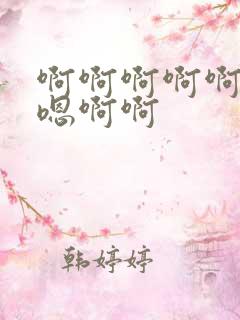 啊啊啊啊啊
嗯啊啊
韩婷婷